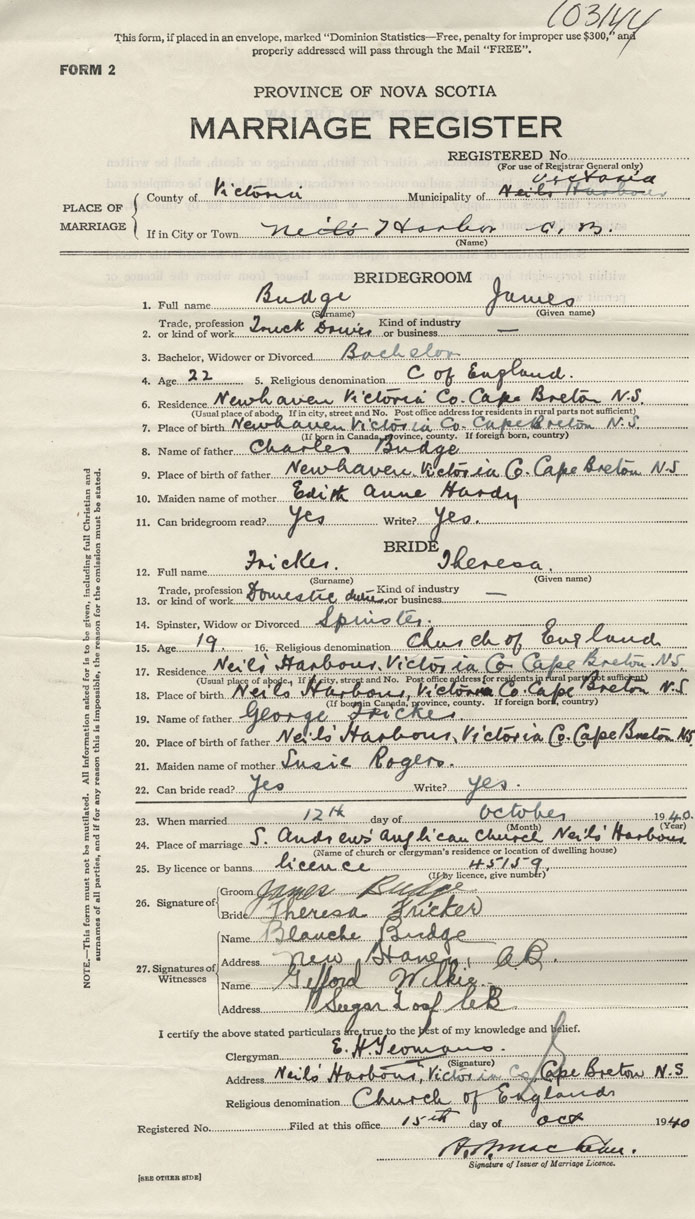 103144
This form, if placed in an envelope, marked "Dominion Statistics—Free, penalty for improper use $300," and
properly addressed will pass through the Mail "FREE".
FORM 2
PROVINCE OF NOVA SCOTIA
MARRIAGE REGISTER
REGISTERED No.
(For use of Registrar General only)
Victoria
PLACE OF MARRIAGE County of Victoria Municipality of Neils Harbour
If in City or Town Neils Harbor C. B.
(Name)
BRIDEGROOM
1. Full name Budge James
(Surname) (Given name)
2. Trade, profession or kind of work Truck Driver Kind of industry or business —
3. Bachelor, Widower or Divorced Bachelor
4. Age 22 5. Religious denomination C of England.
6. Residence Newhaven Victoria Co. Cape Breton N.S.
(Usual place of abode. If in city, street and No. Post office address for residents in rural parts not sufficient)
7. Place of birth Newhaven Victoria Co. Cape Breton N.S.
(If born in Canada, province, county. If foreign born, country)
8. Name of father Charles Budge
9. Place of birth of father Newhaven Victoria Co. Cape Breton N.S
10. Maiden name of mother Edith Anne Hardy
11. Can bridegroom read? Yes Write? Yes.
BRIDE
12. Full name Fricker. Theresa.
(Surname) (Given name)
13. Trade, profession or kind of work Domestic duties Kind of industry or business —
14. Spinster, Widow or Divorced Spinster.
15. Age 19 16. Religious denomination Church of England
17. Residence Neil's Harbour, Victoria Co Cape Breton N.S.
(Usual place of abode. If in city, street and No. Post office address for residents in rural parts not sufficient)
18. Place of birth Neils Harbour, Victoria Co. Cape Breton N.S
(If born in Canada, province, county. If foreign born, country)
19. Name of father George Fricker
20. Place of birth of father Neils Harbour, Victoria Co. Cape Breton NS
21. Maiden name of mother Susie Rogers.
22. Can bride read? Yes Write? Yes.
23. When married 12th day of October 1940.
(Month) (Year)
24. Place of marriage S. Andrews' Anglican Church Neils' Harbour
(Name of church or clergyman's residence or location of dwelling house)
25. By licence or banns licence 45159.
(If by licence, give number)
26. Signature of Groom James Budge
Bride Theresa Fricker
27. Signatures of Witnesses Name Blanche Budge
Address New Haven, C.B.
Name Gifford Wilkie
Address Sugar Loaf C.B
I certify the above stated particulars are true to the best of my knowledge and belief.
Clergyman E. H. Yeomans.
(Signature)
Address Neils' Harbour, Victoria Co, Cape Breton N.S
Religious denomination Church of England
Registered No. Filed at this office 15th day of Oct 1940
Signature of Issuer of Marriage Licence.
[SEE OTHER SIDE]
NOTE.—This form must not be mutilated. All information asked for is to be given, including full Christian and
surnames of all parties, and if for any reason this is impossible, the reason for the omission must be stated.